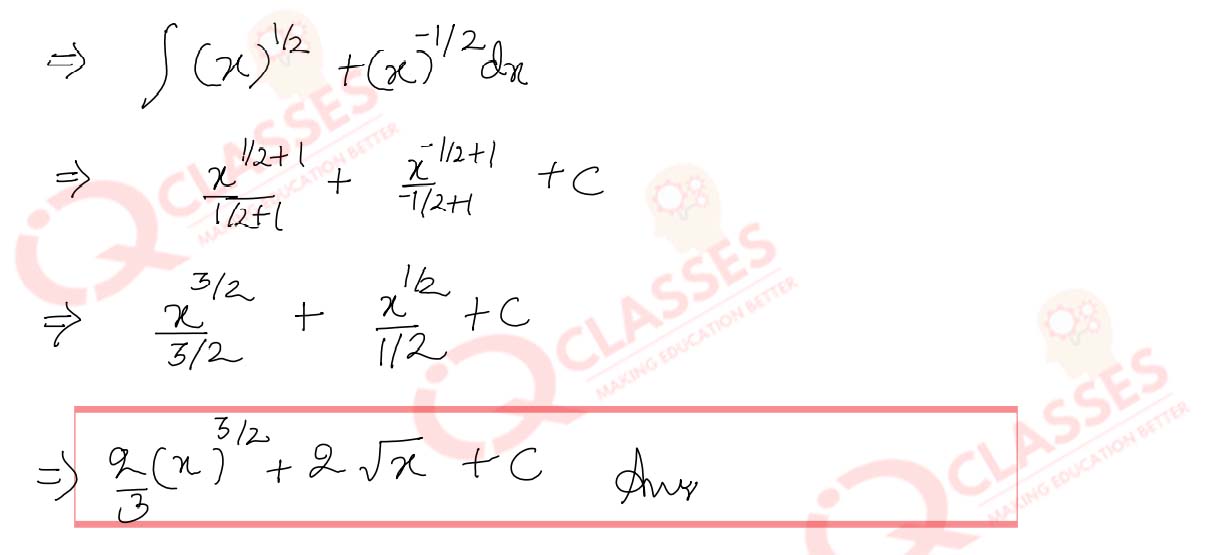 ⇒ ∫ (x)^{1/2} + (x)^{-1/2} dx
⇒ x^{1/2+1}/(1/2+1) + x^{-1/2+1}/(-1/2+1) + C
⇒ x^{3/2}/(3/2) + x^{1/2}/(1/2) + C
⇒ 2/3 (x)^{3/2} + 2√x + C Ans
iQ CLASSES
MAKING EDUCATION BETTER
iQ CLASSES
MAKING EDUCATION BETTER
iQ CLASSES
MAKING EDUCATION BETTER